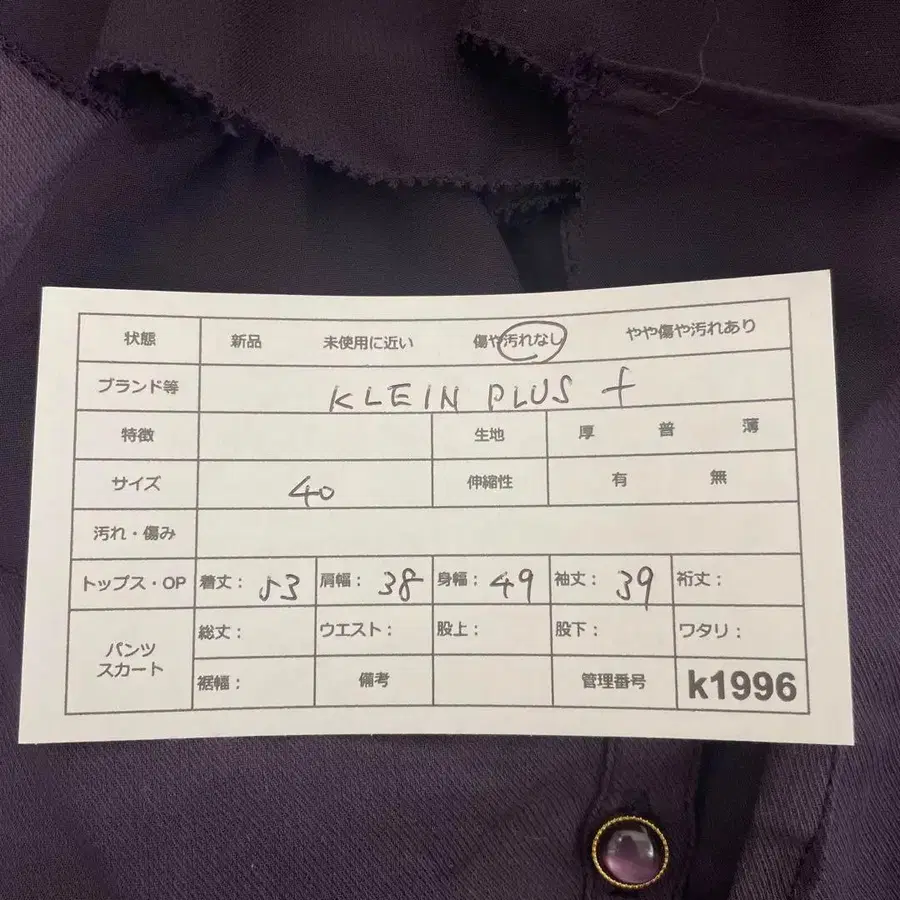 状態 新品 未使用に近い 傷や汚れなし やや傷や汚れあり
ブランド等 KLEIN PLUS f
特徴 生地 厚 普 薄
サイズ 40 伸縮性 有 無
汚れ・傷み
トップス・OP 着丈: 53 肩幅: 38 身幅: 49 袖丈: 39 裄丈:
パンツ スカート 総丈: ウエスト: 股上: 股下: ワタリ:
裾幅: 備考 管理番号 k1996